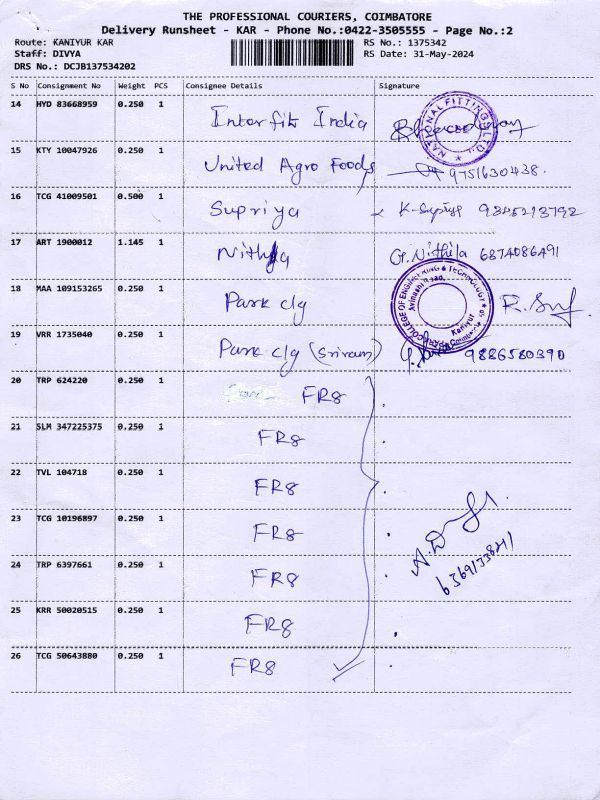 THE PROFESSIONAL COURIERS, COIMBATORE
Delivery Runsheet - KAR - Phone No.:0422-3505555 - Page No.:2
Route: KANIYUR KAR RS No.: 1375342
Staff: DIVYA RS Date: 31-May-2024
DRS No.: DCJB137534202
S No Consignment No Weight PCS Consignee Details Signature
14 HYD 83668959 0.250 1 Interfit India
NATIONAL FITTINGS LTD
15 KTY 10047926 0.250 1 United Agro Foods 9751630438.
16 TCG 41009501 0.500 1 Supriya K-Supriya
17 ART 1900012 1.145 1 Nithya G.Nithila 6874086491
18 MAA 109153265 0.250 1 Park clg
COLLEGE OF ENGINEERING & TECHNOLOGY
Avinashi Road,
Kaniyur
19 VRR 1735040 0.250 1 Park clg (Sriram) 9886580390
20 TRP 624220 0.250 1 FR8
21 SLM 347225375 0.250 1 FR8
22 TVL 104718 0.250 1 FR8
23 TCG 10196897 0.250 1 FR8
24 TRP 6397661 0.250 1 FR8
25 KRR 50020515 0.250 1 FR8
26 TCG 50643880 0.250 1 FR8